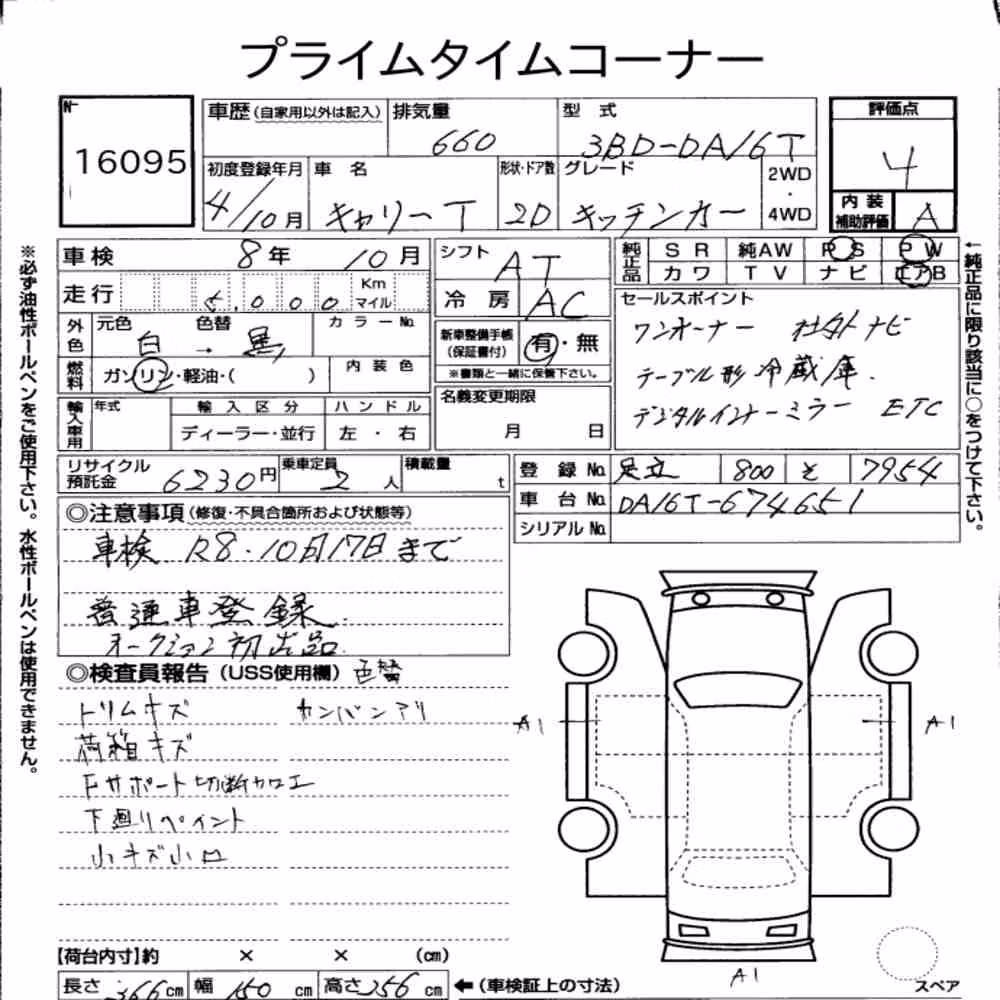 プライムタイムコーナー
No
16095
車歴(自家用以外は記入) 排気量 660 型式 3BD-DA16T
評価点 4
初度登録年月 4/10月 車名 キャリーT 形状・ドア数 2D グレード キッチンカー 2WD・4WD
内装補助評価 A
車検 8年 10月 シフト AT 純正品 SR 純AW PS PW
カワ TV ナビ エアB
走行 5,000 Km マイル 冷房 AC
セールスポイント
外色 元色 白 → 色替 黒 カラーNo.
新車整備手帳(保証書付) 有・無
ワンオーナー 社外ナビ
燃料 ガソリン・軽油・( ) 内装色
※書類と一緒に保管下さい。
テーブル形冷蔵庫.
輸入車用 年式 輸入区分 ハンドル
名義変更期限
デジタルインナーミラー ETC
ディーラー・並行 左・右
月 日
リサイクル預託金 6230円 乗車定員 2人 積載量 t
登録No. 足立 800 そ 7954
車台No. DA16T-674651
シリアルNo.
◎注意事項(修復・不具合箇所および状態等)
車検 R8.10月17日まで
普通車登録.
オークション初出品.
◎検査員報告(USS使用欄) 色替
トリムキズ カンバンアリ
荷箱キズ
Fサポート切断カコエ
下廻りペイント
小キズ小凹
A1
A1
A1
スペア
【荷台内寸】約 × × (cm)
長さ 366cm 幅 150cm 高さ 256cm ←(車検証上の寸法)
※必ず油性ボールペンをご使用下さい。水性ボールペンは使用できません。
←純正品に限り該当に○をつけて下さい。